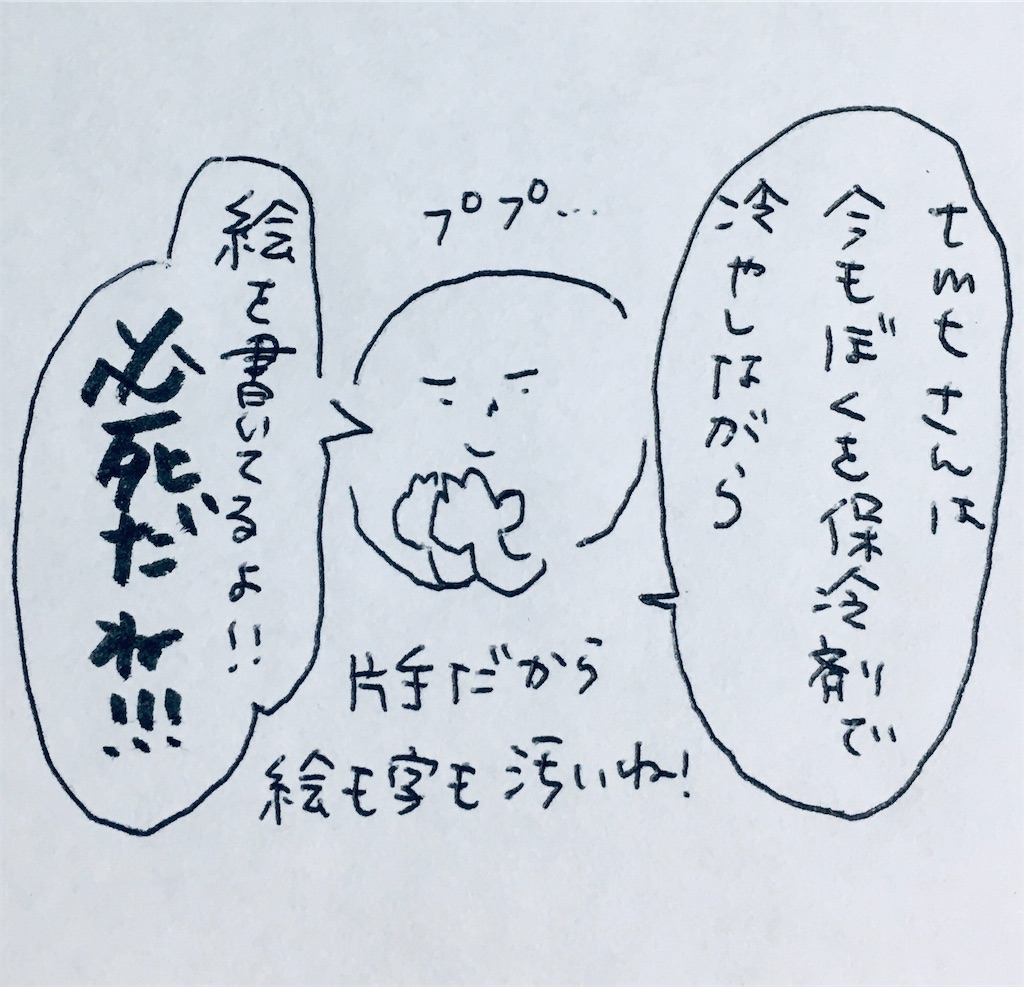 tmtさんは
今もぼくを保冷剤で
冷やしながら
ププ…
絵を書いてるよ!!
必死だね!!!
片手だから
絵も字も汚いね!